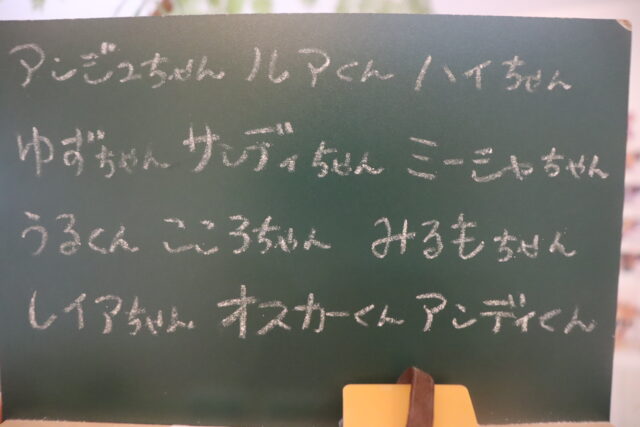 アンジュちゃん ルアくん ハイちゃん
ゆずちゃん サンディちゃん ミーシャちゃん
うるくん こころちゃん みるもちゃん
レイアちゃん オスカーくん アンディくん